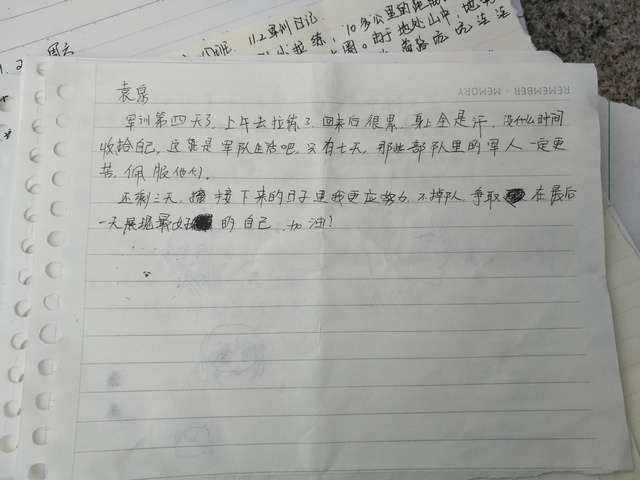 11.2军训日记
小拉练，10多公里的距离
图。由于地处山中，地
REMEMBER·MEMORY
袁泉
军训第四天了，上午去拉练了，回来后很累，身上全是汗，没什么时间
收拾自己，这就是军队生活吧，只有七天，那些部队里的军人一定更
苦，佩服他们。
还剩三天，接下来的日子里我更应努力，不掉队，争取在最后
一天展现最好的自己，加油！